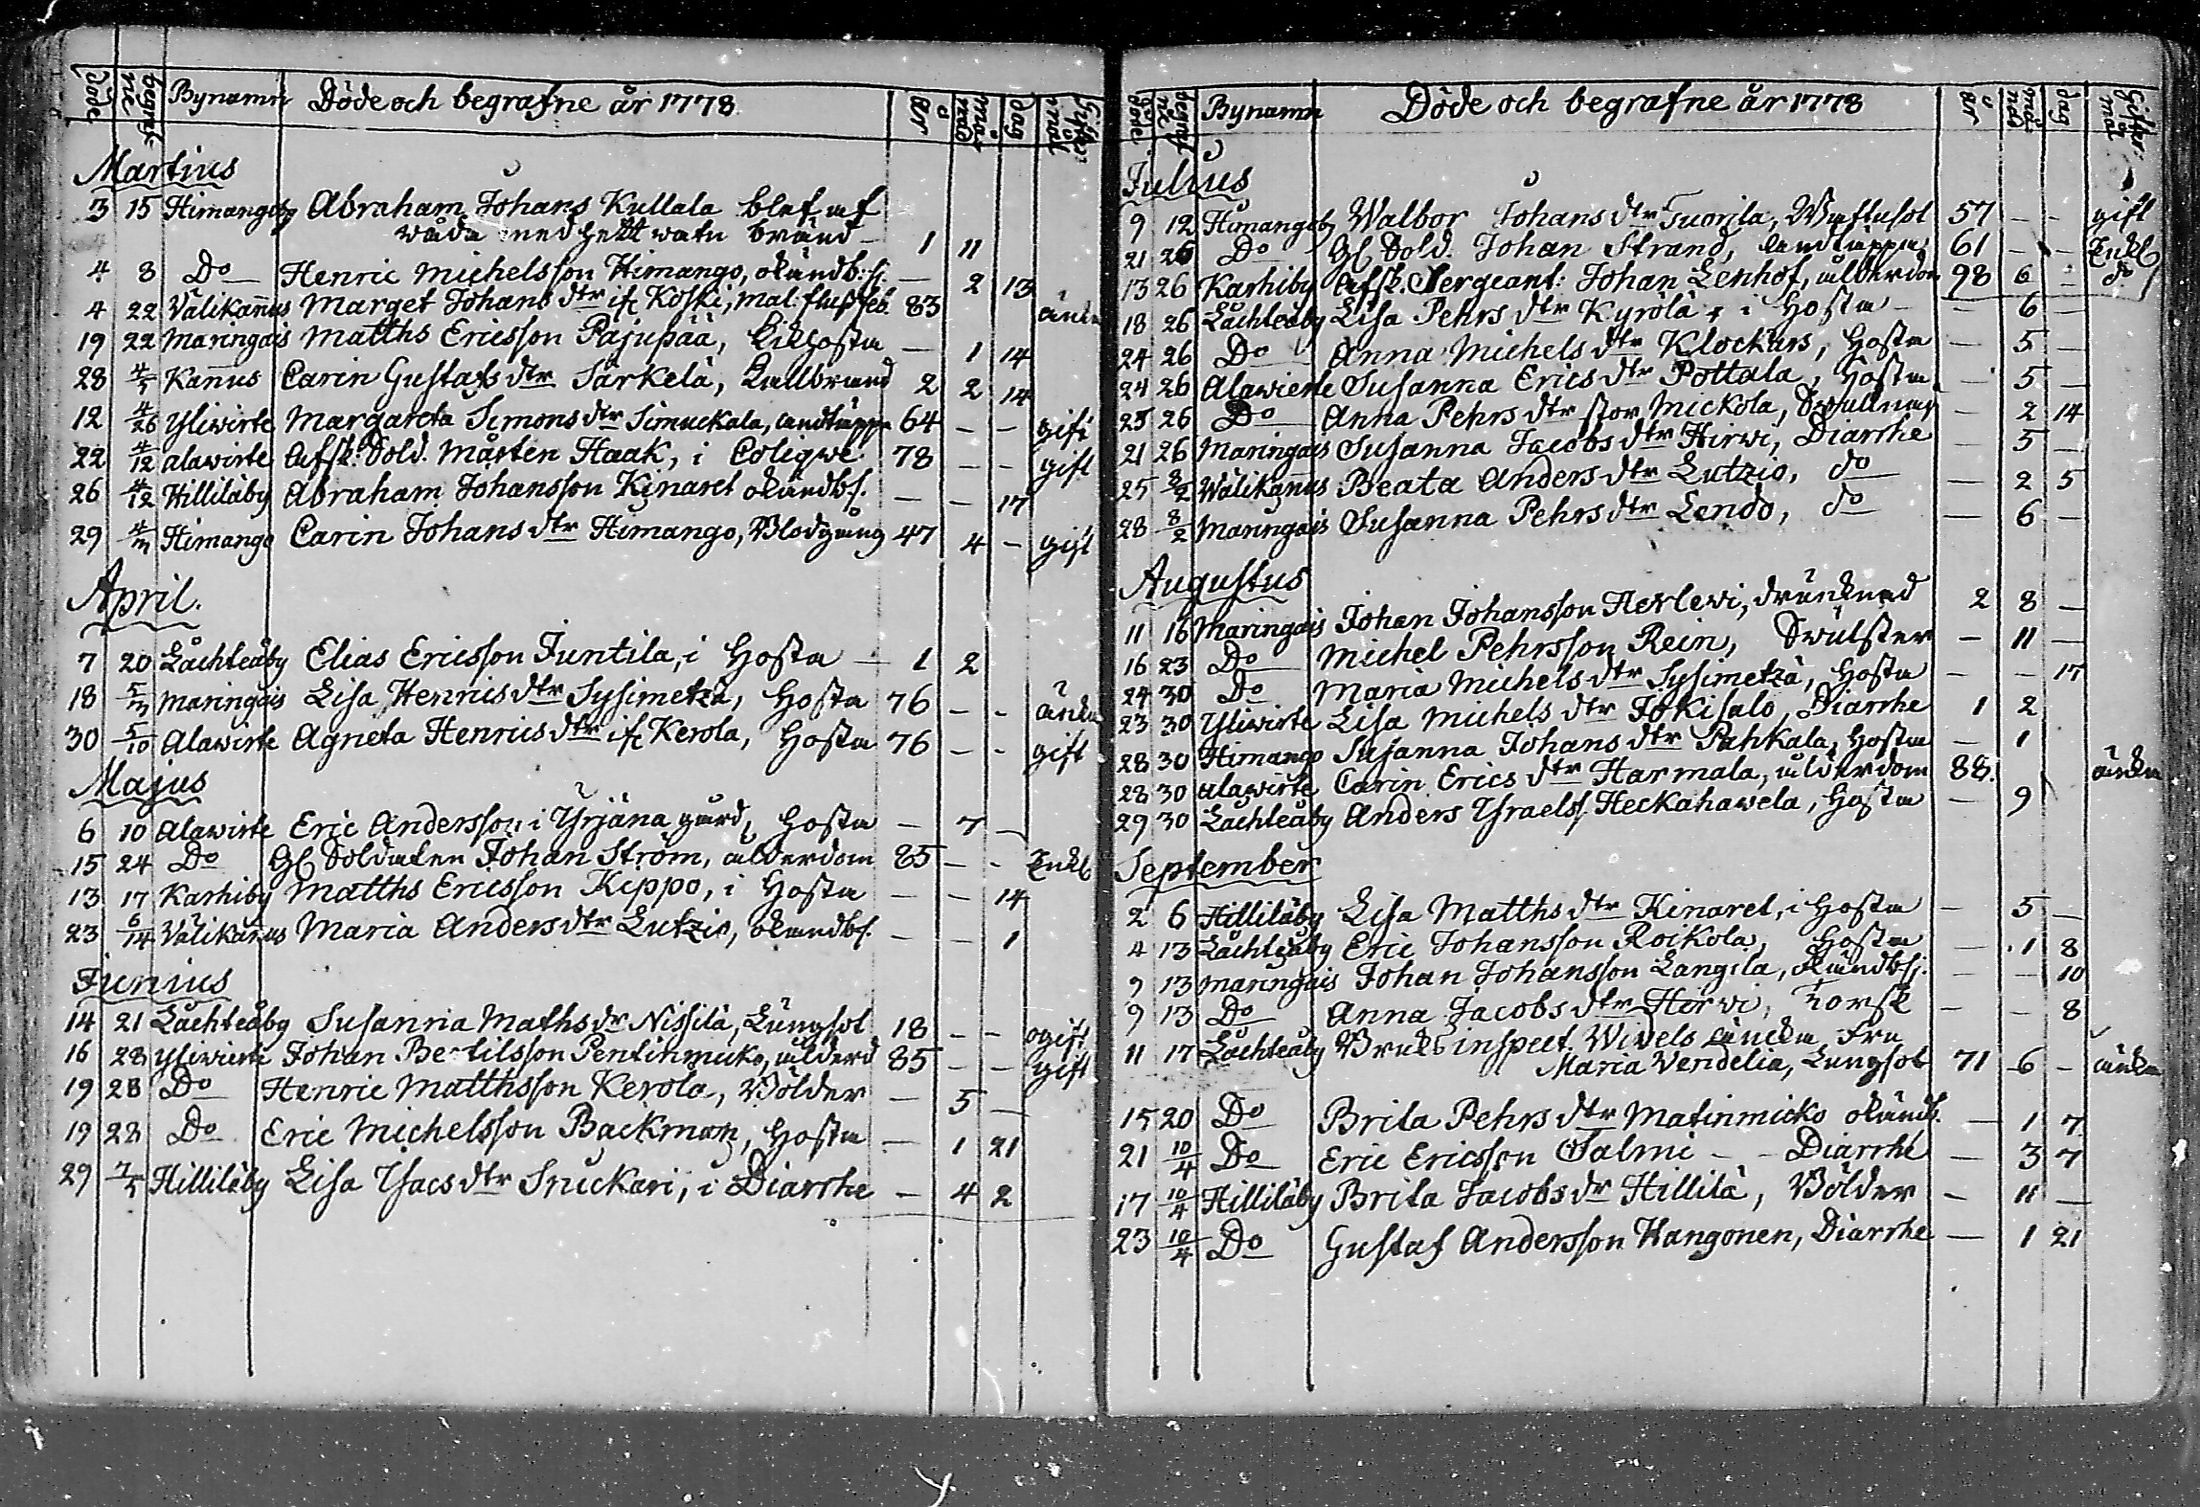 döde begrafne Bynamn Döde och begrafne år 1778 år månad dag Giftermål
Martius
3 15 Himangoby Abraham Johans Kullala blef af
våda med hett vatn bränd – 1 11
4 8 Do Henric Michelsson Himango, okändb:sj. – 2 13
4 22 Välikannus Marget Johans dtr if Koski, mal: flussfeb. 83 änka
19 22 Maringais Matths Ericsson Pajupää, Kikhosta – 1 14
28 4/5 Kannus Carin Gustafs dtr Särkelä, Kallbrand 2 2 14
12 4/26 Yliwirte Margareta Simons dtr Simuckala, andtäppa 64 – – gift
22 4/12 Alawirte Afsk. Sold. Mårten Haak, i Coliqve 78 – – gift
26 4/12 Hilliläby Abraham Johansson Kinaret okändbs. – – 17
29 4/ Himango Carin Johans dtr Himango, Blodgång 47 4 – gift
April.
7 20 Låchteåby Elias Ericsson Juntila, i Hosta – 1 2
18 5/ Maringais Lisa Henrics dtr Sysimetzä, Hosta 76 – – änka
30 5/10 Alawirte Agneta Henrics dtr if Kerola, Hosta 76 – – gift
Majus
6 10 Alawirte Eric Andersson i Yrjänä gård, Hosta – 7 –
15 24 Do Gl Soldaten Johan Ström, ålderdom 85 – – Enkl
13 17 Karhiby Matths Ericsson Kippo, i Hosta – – 14
23 6/14 Välikannus Maria Anders dtr Lutzio, okändbs. – – 1
Junius
14 21 Låchteåby Susanna Mathsdr Nissilä, Lungsot 18 – – ogift
16 28 Yliwirte Johan Bertilsson Pentinmicko, ålderd 85 – – gift
19 28 Do Henric Matthsson Kerola, Bölder – 5 –
19 28 Do Eric Michelsson Backman, Hosta – 1 21
29 7/5 Hilliläby Lisa Ysacs dtr Snickari, i Diarrhe – 4 2
döde begrafne Bynamn Döde och begrafne år 1778 år månad dag Giftermål
Julius
9 12 Himangoby Walbor Johans dtr Tuorila, Wattusot 57 – – gift
21 26 Do Gl Sold. Johan Strand, andtäppa 61 – – Enkl
13 26 Karhiby Afsk. Sergeant: Johan Lenhof, ålderdom 98 6 – do
18 26 Låchteåby Lisa Pehrs dtr Kyrölä, i Hosta – – 6 –
24 26 Do Anna Michels dtr Klockars, Hosta – 5 –
24 26 Alawierte Susanna Erics dtr Pottala, Hosta – 5 –
25 26 Do Anna Pehrs dtr stor Mickola, Svullnad – 2 14
21 26 Maringais Susanna Jacobs dtr Hirwi, Diarrhe – 5 –
25 8/2 Wälikannus Beata Anders dtr Lutzio, do – 2 5
28 8/2 Maringais Susanna Pehrs dtr Lendo, do – 6 –
Augustus
11 16 Maringais Johan Johansson Herlewi, drunknad 2 8 –
16 23 Do Michel Pehrsson Rein, Swulster – 11 –
24 30 Do Maria Michels dtr Sysimetzä, Hosta – – 17
23 30 Yliwirte Lisa Michels dtr Jokisalo, Diarrhe 1 2
28 30 Himango Susanna Johans dtr Pahkala, Hosta – 1
28 30 Alawirte Carin Erics dtr Harmala, ålderdom 88. änka
29 30 Låchteåby Anders Ysraelss. Heckahawela, Hosta – 9
September
2 6 Hilliläby Lisa Matths dtr Kinaret, i Hosta – 5 –
4 13 Låchteåby Eric Johansson Roikola, Hosta – 1 8
9 13 Maringais Johan Johansson Langila, okändbsj. – – 10
9 13 Do Anna Jacobs dtr Herwi, Torsk – – 8
11 17 Låchteåby Bruks inspect. Widels änka Fru
Maria Vendelia, Lungsot 71 6 – änka
15 20 Do Brita Pehrs dtr Matinmicko okändb. – 1 7
21 10/4 Do Eric Ericsson Salmi – – Diarrhe – 3 7
17 10/4 Hilliläby Brita Jacobs dr Hillilä, Bölder – 11 –
23 10/4 Do Gustaf Andersson Kangonen, Diarrhe – 1 21